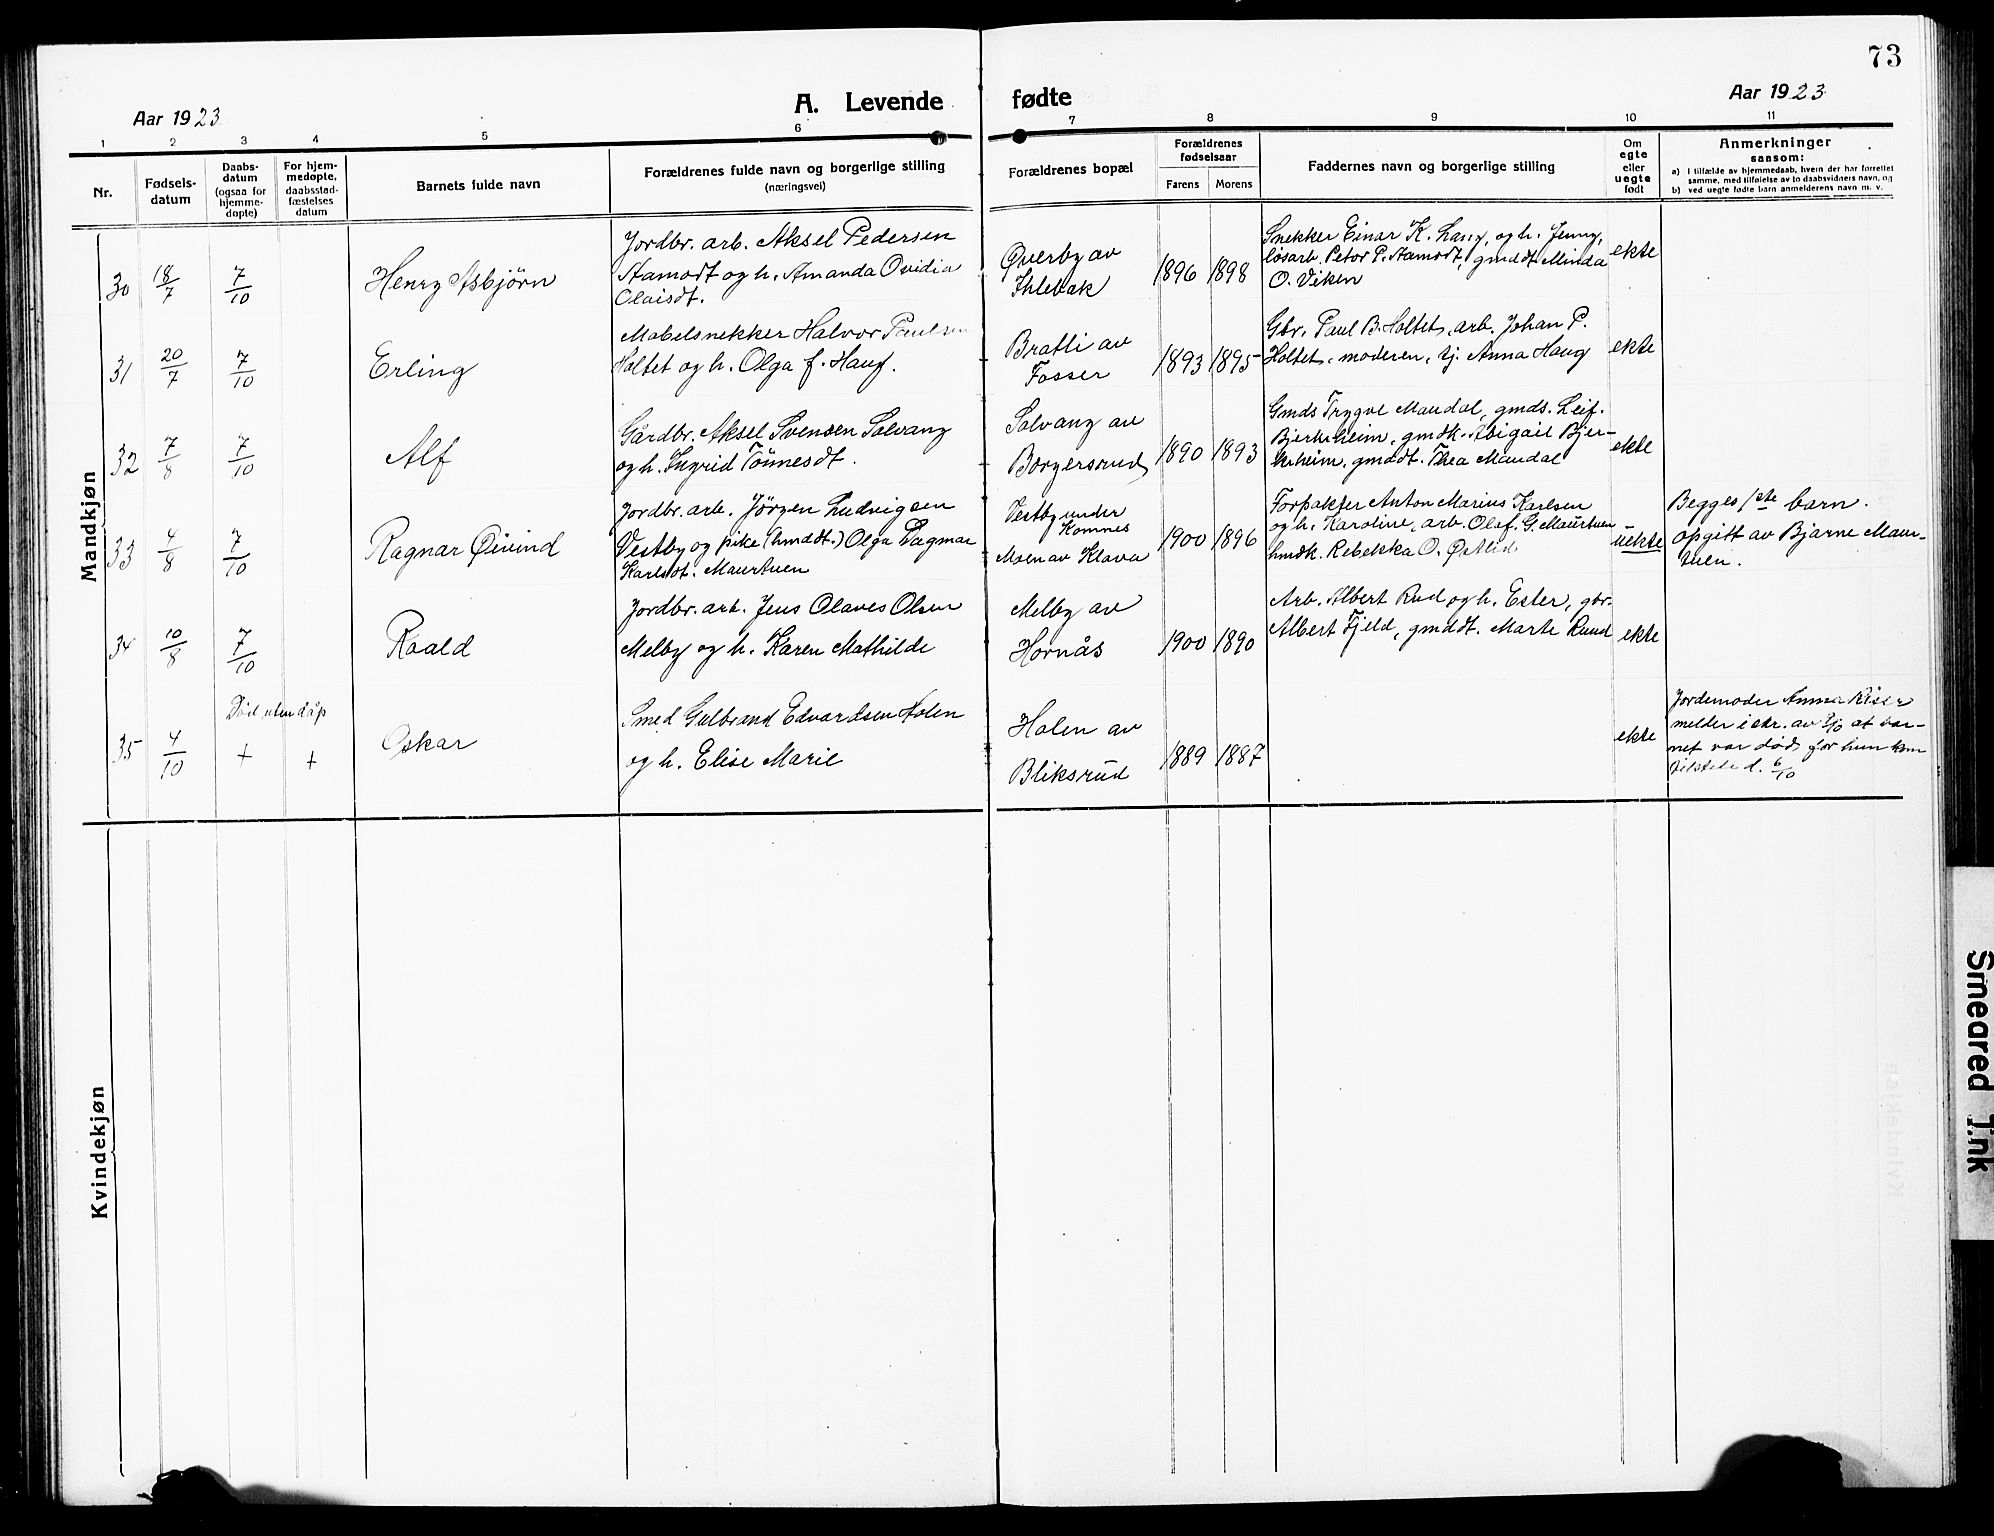 73
Aar 1923
A. Levende
fødte
Aar 1923
1 2 3 4 5 6 7 8 9 10 11
Nr.
Fødsels-
datum
Daabs-
datum
(ogsaa for
hjemme-
døpte)
For hjem-
medøpte,
daabsstad-
fæstelses
datum
Barnets fulde navn
Forældrenes fulde navn og borgerlige stilling
(næringsvei)
Forældrenes bopæl
Forældrenes
fødselsaar
Farens Morens
Faddernes navn og borgerlige stilling
Om
egte
eller
uegte
født
Anmerkninger
saasom:
a) I tilfælde av hjemmedaab, hvem der har forrettet
samme, med tilføielse av to daabsvidners navn, og
b) ved uegte fødte barn anmelderens navn m. v.
Mandkjøn
30 18/7 7/10 Henry Asbjørn
Jordbr. arb. Aksel Pedersen
Stamodt og h. Amanda Ovidia
Olaisdt.
Øverby av
Ihlebæk
1896 1898
Snekker Einar K. Haug, og h. Jenny,
løsarb. Peter P. Stamodt, gmddt Minda
O. Viken
ekte
31 20/7 7/10 Erling
Møbelsnekker Halvor Paulsen
Holtet og h. Olga f. Haug.
Bratli av
Fosser
1893 1895
Gbr. Paul B. Holtet, arb. Johan P.
Holtet, moderen, tj. Anna Haug
ekte
32 7/8 7/10 Alf
Gårdbr. Aksel Svensen Solvang
og h. Ingrid Tönnesdt.
Solvang av
Borgersrud
1890 1893
Gmds Trygve Maudal, gmds. Leif
Bjerkrheim, gmdk. Abigail Bjer-
krheim, gmddt. Thea Maudal
ekte
33 4/8 7/10 Ragnar Øivind
Jordbr. arb. Jörgen Ludvigsen
Vestby og pike (hmddt.) Olga Dagmar
Karlsdt. Maurtuen
Vestby under
Komnes
Moen av Klava
1900 1896
Forpakter Anton Marius Karlsen
og h. Karoline, arb. Olaf. G. Maurtuen
hmdk. Rebekka O. Østlid
uekte
Begges 1ste barn.
Opgitt av Bjarne Maur-
tuen.
34 10/8 7/10 Roald
Jordbr. arb. Jens Olaves Olsen
Melby og h. Karen Mathilde
Melby av
Hornås
1900 1890
Arb. Albert Rud og h. Ester, gbr.
Albert Fjeld, gmddt. Marte Ruud
ekte
Död uten dåp
35 4/10 + + Oskar
Smed Gulbrand Edvardsen Holen
og h. Elise Marie
Holen av
Bliksrud
1889 1887
ekte
Jordemoder Anna Riser
melder i skr. av 7/10 at bar-
net var död, før hun kom
tilstede d. 6/10
Kvindekjøn
Smeared Ink